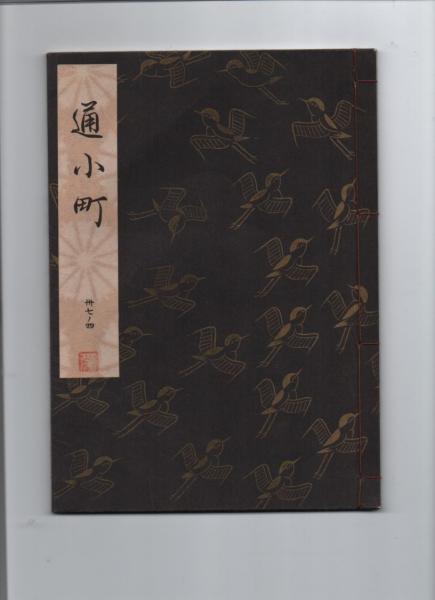 通小町
卅七ノ四